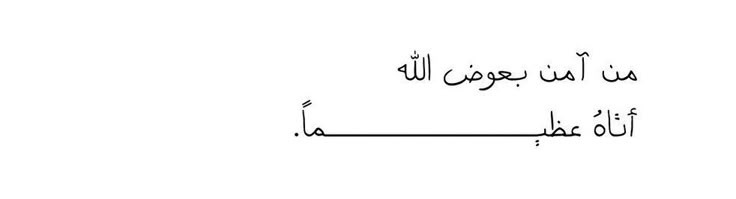 من آمن بعوض الله
أتاهُ عظيـــــــــــــــــــــــــماً.